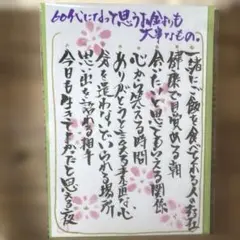 60代になって思うお金よりも
大事なもの。
一緒にご飯を食べてくれる人の存在
健康で目覚める朝
会いたいと思ってもらえる関係
心から笑える時間
ありがとうと言える素直な心
気を遣わないでいられる場所
思い出を語める相手
今日も生きて良かったと思える夜